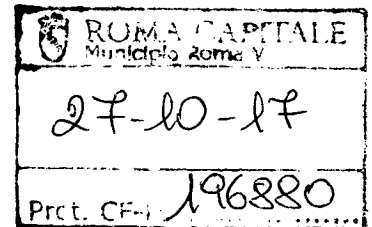 ROMA CAPITALE
Municipio Roma V
27-10-17
Prot. CF- 196880